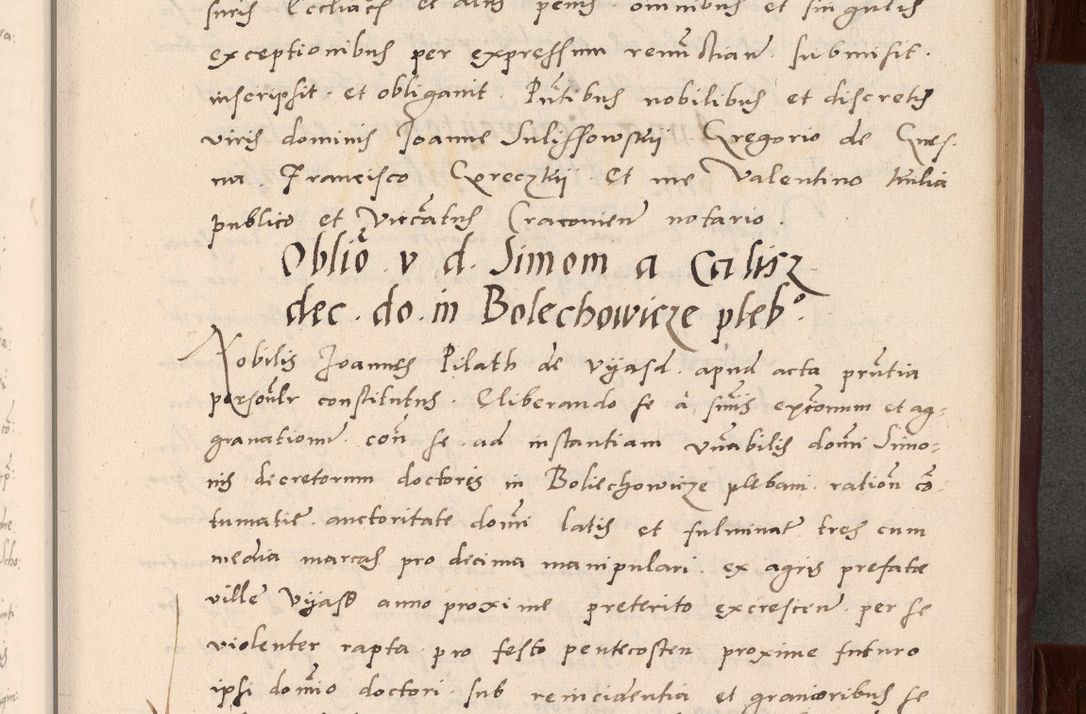 exceptionibus per expressum renu͞ctian̄ submisit.
inscripsit. et obligavit. Pn̄tibus nobilibus et discretis
viris dominis Joanne Suliszowskij Gregorio de Gnes.
na. Francisco Goreczkij Et me Valentino
publico et Cracovien̄ notario.
Oblĩo. v. d. Simom a Calisz
dec. do. in Bolechowicze pleb°.
Nobilis Joannes Pilath de Vijasd. apud acta prn̄tia
personlr̄ constitutus. Eliberando se a suis exco͞mum et ag=
gravationu͞. con̄ se ad instantiam vn̄abilis domi͞ Simo=
nis decretorum doctoris in Boliechowicze plebani. ration̄ co͞
tumatie. auctoritate domi͞ latis et fulminat͞ tres cum
media marcas pro decima manipulari. ex agris prefate
ville Vijasd anno proxime preterito excrescen̄. per se
violenter rapta pro festo pentecosten proxime futuro
ipsi domi͞o doctori. sub reincidentia et gravioribus se